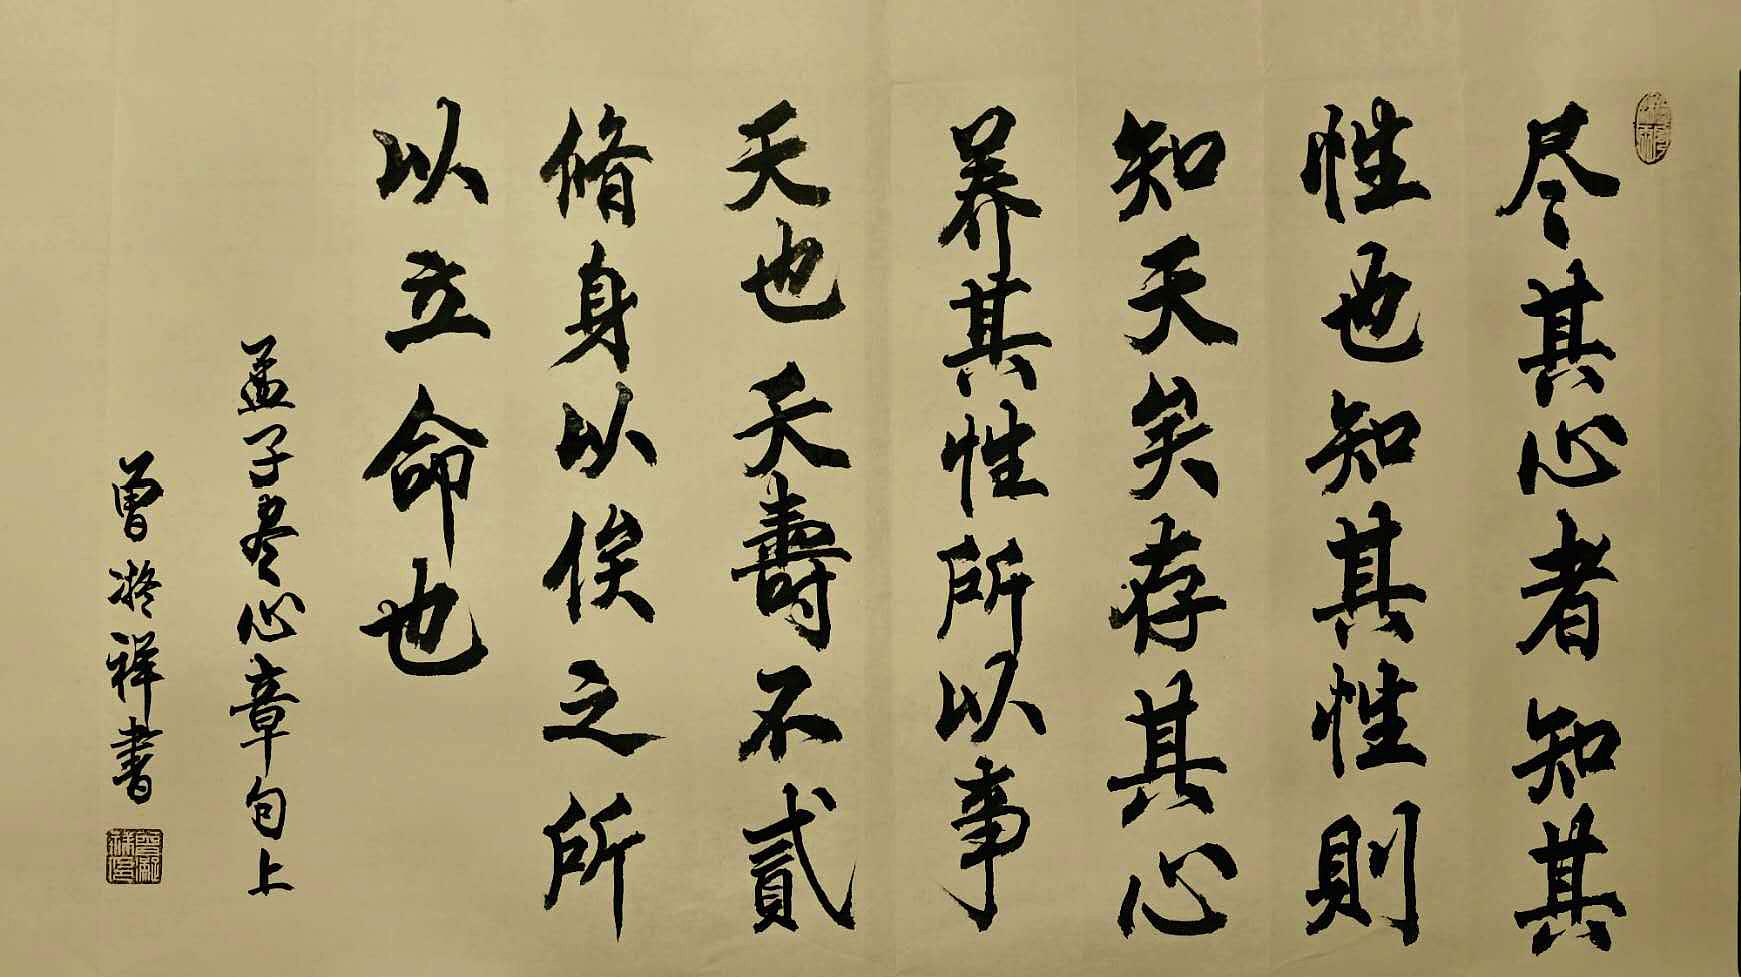 尽其心者知其
性也知其性則
知天矣存其心
养其性所以事
天也夭壽不貳
脩身以俟之所
以立命也
孟子尽心章句上
曾凝祥書